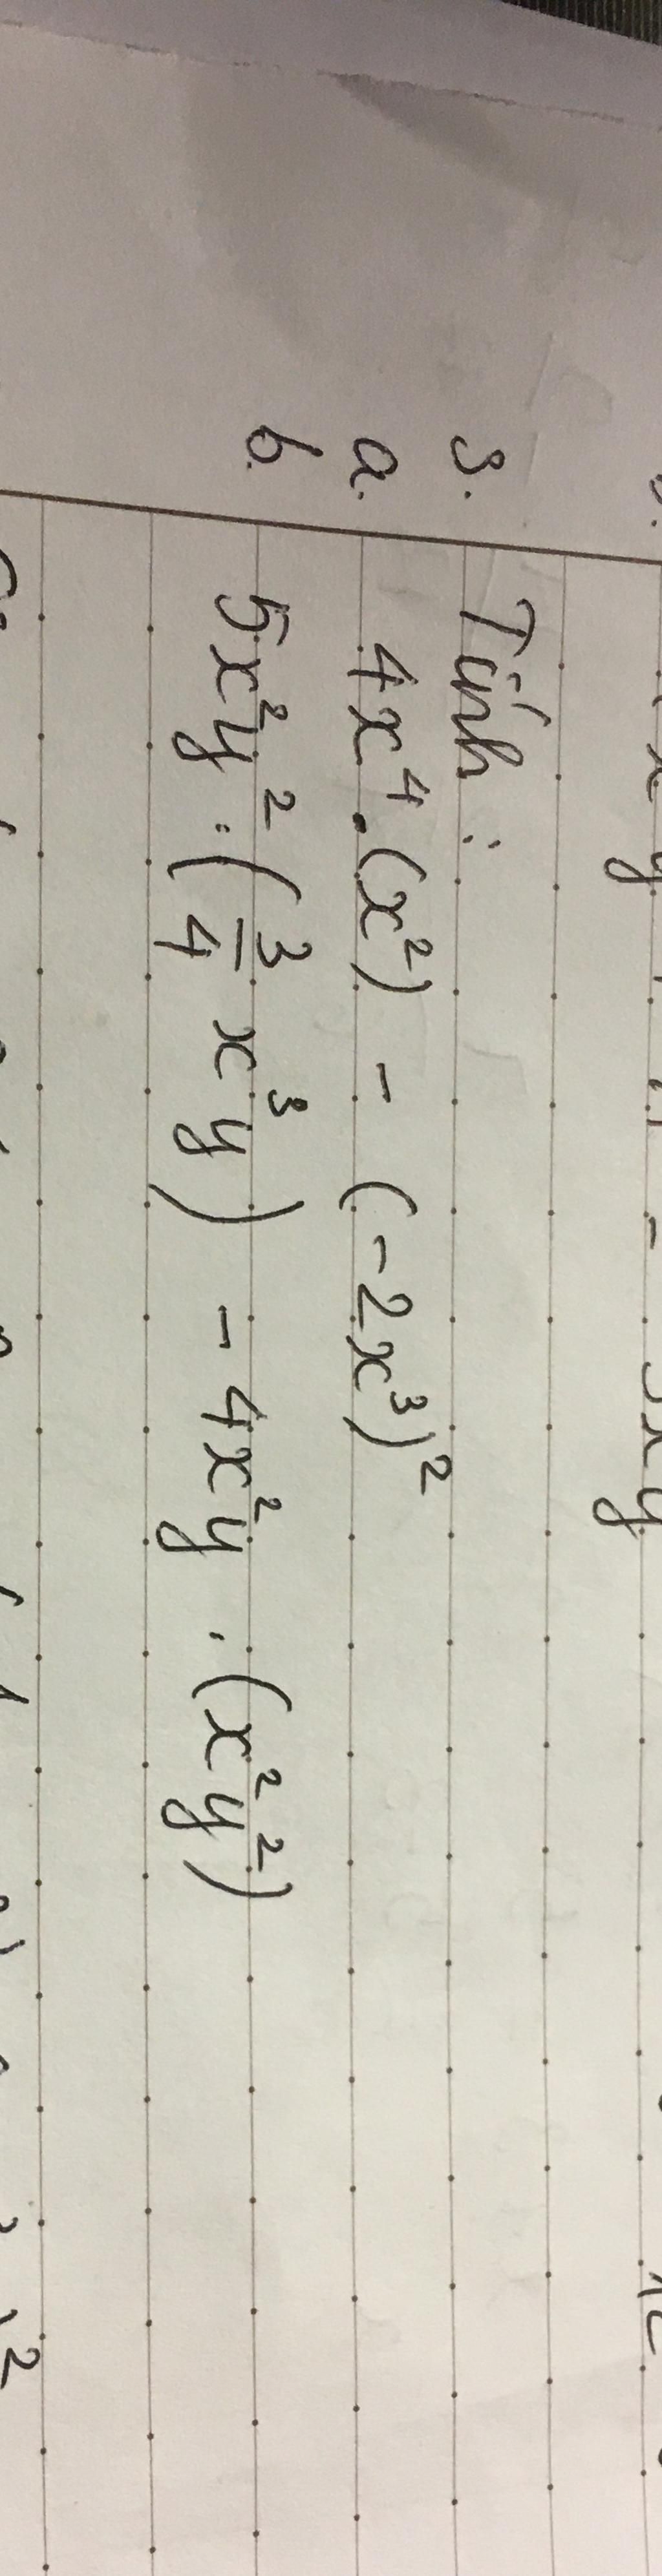 3. Tính :
a. 4x⁴.(x²) - (-2x³)²
b. 5x²y².(3/4 x³y) - 4x²y.(x²y²)